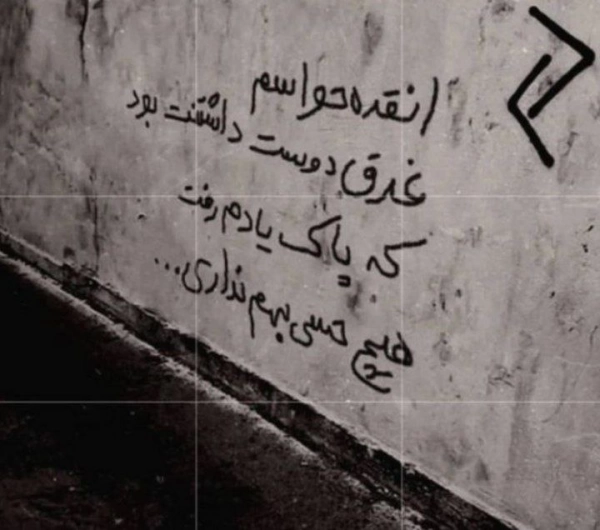 انقده حواسم
غرق دوست داشتنت بود
که پاک یادم رفت
هیچ حسی بهم نداری...